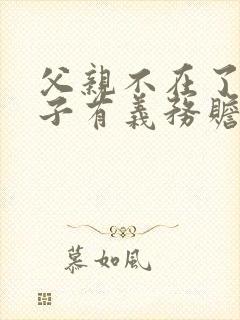 父親不在了
子有義務贍
慕如風